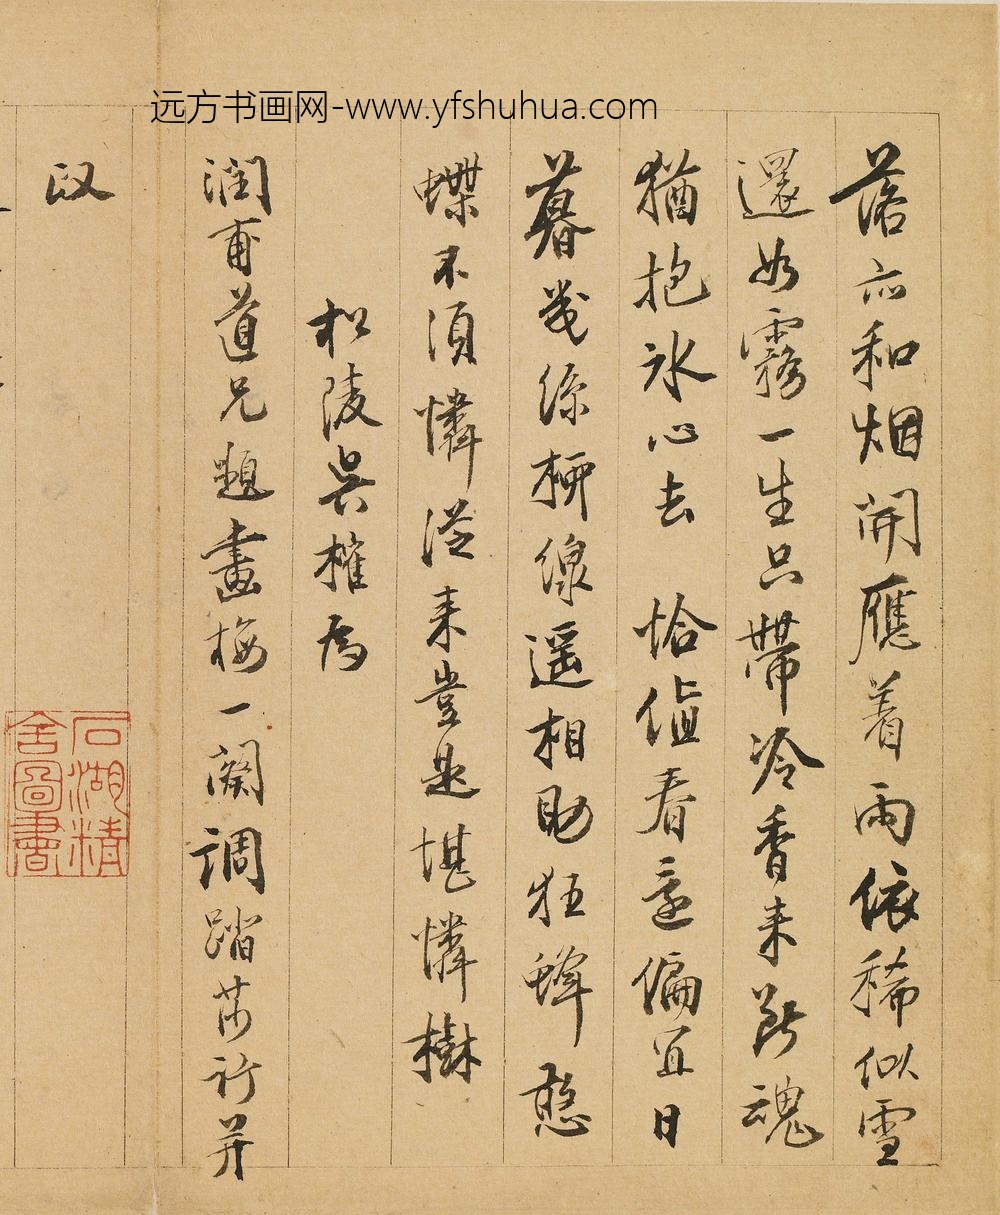 远方书画网-www.yfshuhua.com
落亦和烟開應着雨依稀似雪
還如霧一生只帶冷香来断魂
猶抱氷心去 恰值春還偏宜日
暮幾絲柳線遥相助狂蜂憨
蝶不須憐從来豈是堪憐樹
松陵吴權為
潤甫道兄題畫梅一闋調踏莎行并
政
石湖精舍圖書